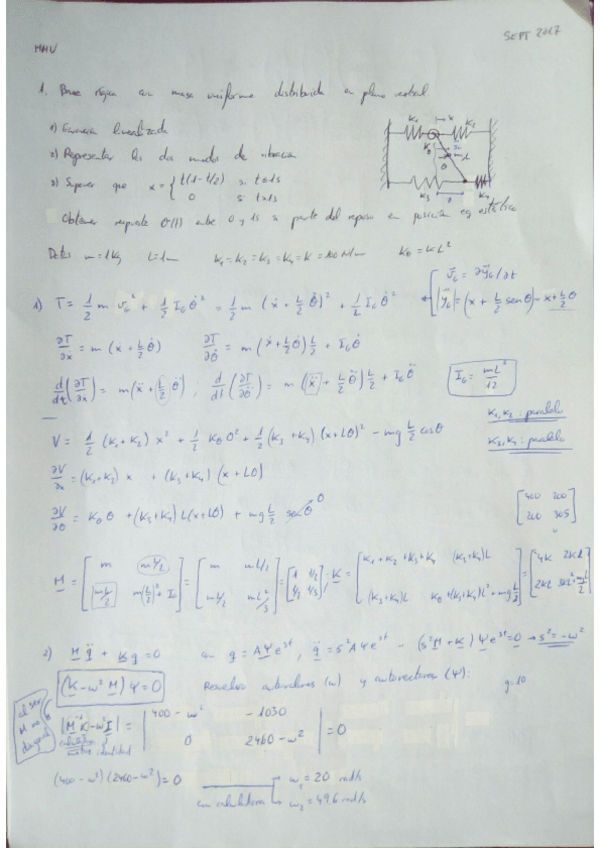 SEPT 2017
MMV
1. Barra rígida con masa uniforme distribuida en plano vertical.
1) Ecuación linealizada
2) Representar los dos modos de vibración
3) Suponer que x = { t(1-t/2) si t≤1s
0 si t>1s
Obtener respuesta θ(t) entre 0 y 1s si parte del reposo en posición eq estático
Datos m = 1 kg L = 1m K₁ = K₂ = K₃ = K₄ = K = 100 N/m Kθ = KL²
K₁ x K₂
Kθ θ
K₃ K₄
1) T = 1/2 m v_G² + 1/2 I_G θ̇² = 1/2 m (ẋ + L/2 θ̇)² + 1/2 I_G θ̇²
|y_G| = (x + L/2 senθ) ~ x + L/2 θ
∂T/∂ẋ = m (ẋ + L/2 θ̇) ∂T/∂θ̇ = m (ẋ + L/2 θ̇) L/2 + I_G θ̇
= m(ẍ + L/2 θ̈) ; d/dt (∂T/∂θ̇) = m (ẍ + L/2 θ̈) L/2 + I_G θ̈
I_G = mL²/12
V = 1/2 (K₁+K₂) x² + 1/2 Kθ θ² + 1/2 (K₃+K₄)(x+Lθ)² - mg L/2 cosθ
K₁, K₂ : paralelo
K₃, K₄ : paralelo
∂V/∂x = (K₁+K₂) x + (K₃+K₄)(x+Lθ)
∂V/∂θ = Kθ θ + (K₃+K₄) L(x+Lθ) + mg L/2 senθ
[400 200
200 305]
M = [m mL/2
mL/2 m(L/2)² + I_G] = [m mL/2
mL/2 mL²/3] = [1 1/2
1/2 1/3] ; K = [K₁+K₂+K₃+K₄ (K₃+K₄)L
(K₃+K₄)L Kθ+(K₃+K₄)L²+mg L/2] = [4K 2KL
2KL 3KL²+mg L/2]
2) M q̈ + K q = 0 con q = AΨe^st, q̈ = s²AΨe^st - (s²M+K)Ψe^st = 0 → s² = -ω²
(K-ω²M)Ψ = 0 Resuelvo autovalores (ω) y autovectores (Ψ):
g = 10
al ser M no diagonal
|M⁻¹K-ω²I| = |400-ω² -1030
0 2460-ω²| = 0
identidad
(400-ω²)(2460-ω²) = 0
con calculadora
ω₁ = 20 rad/s
ω₂ = 49.6 rad/s